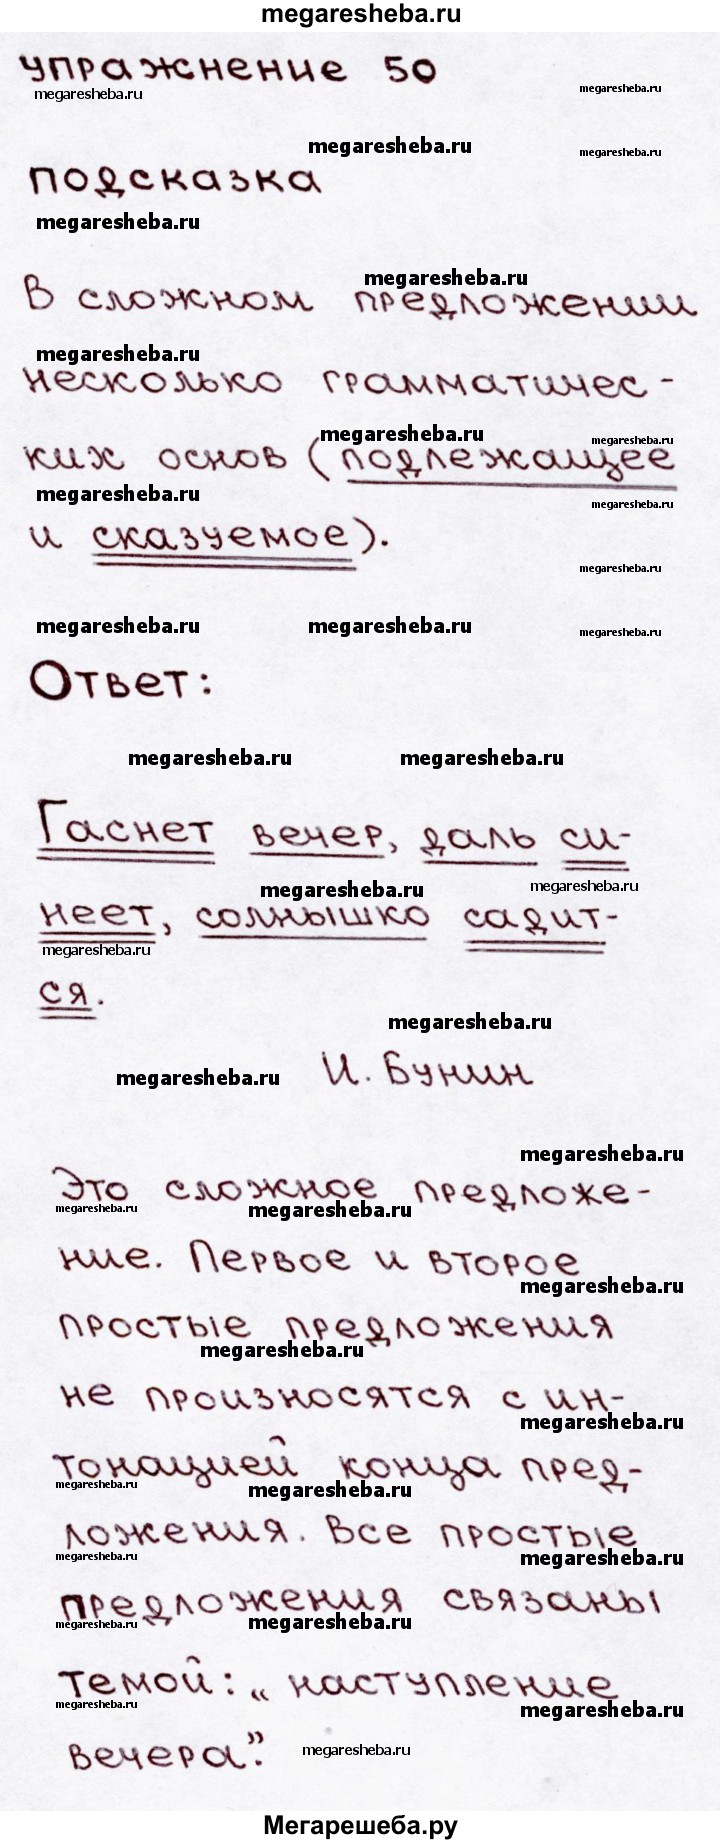 megaresheba.ru
упражнение 50
megaresheba.ru megaresheba.ru
megaresheba.ru megaresheba.ru
подсказка
megaresheba.ru
megaresheba.ru
В сложном предложении
megaresheba.ru
несколько грамматичес-
megaresheba.ru megaresheba.ru
ких основ (подлежащее
megaresheba.ru megaresheba.ru
и сказуемое).
megaresheba.ru
megaresheba.ru megaresheba.ru megaresheba.ru
Ответ:
megaresheba.ru megaresheba.ru
Гаснет вечер, даль си-
megaresheba.ru megaresheba.ru
неет, солнышко садит-
megaresheba.ru
ся.
megaresheba.ru
megaresheba.ru И. Бунин
megaresheba.ru
Это сложное предложе-
megaresheba.ru megaresheba.ru
ние. Первое и второе
megaresheba.ru
простые предложения
megaresheba.ru
не произносятся с ин-
megaresheba.ru
тонацией конца пред-
megaresheba.ru megaresheba.ru
ложения. Все простые
megaresheba.ru megaresheba.ru
предложения связаны
megaresheba.ru megaresheba.ru
темой: „наступление
megaresheba.ru megaresheba.ru
вечера”.
megaresheba.ru
Мегарешеба.ру